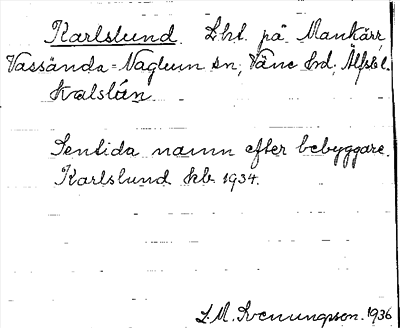 Karlslund. Lht. på Mankärr,
Vassända-Naglum sn, Väne hd, Älfsb. l.
Kralslån.
Sentida namn efter bebyggare.
Karlslund kb 1934.
L. M. Svenungsson. 1936